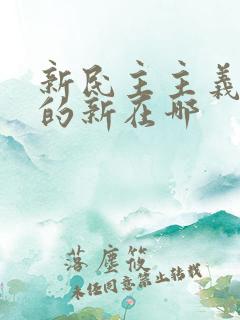 新民主主義
的新在哪
落塵筱
未任同意禁止转载